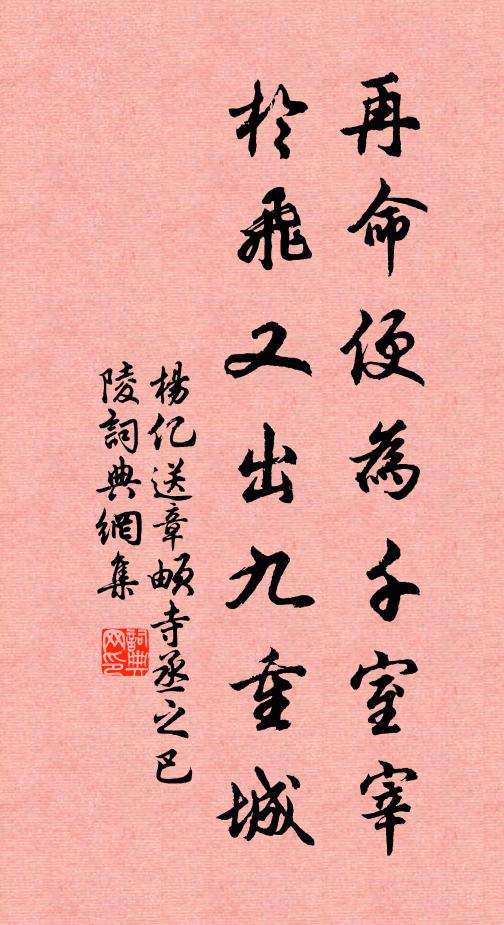 再命便為千室宰
於飛又出九重城
楊亿送章頔寺丞之巴
陵詞典網集
詞典
网印